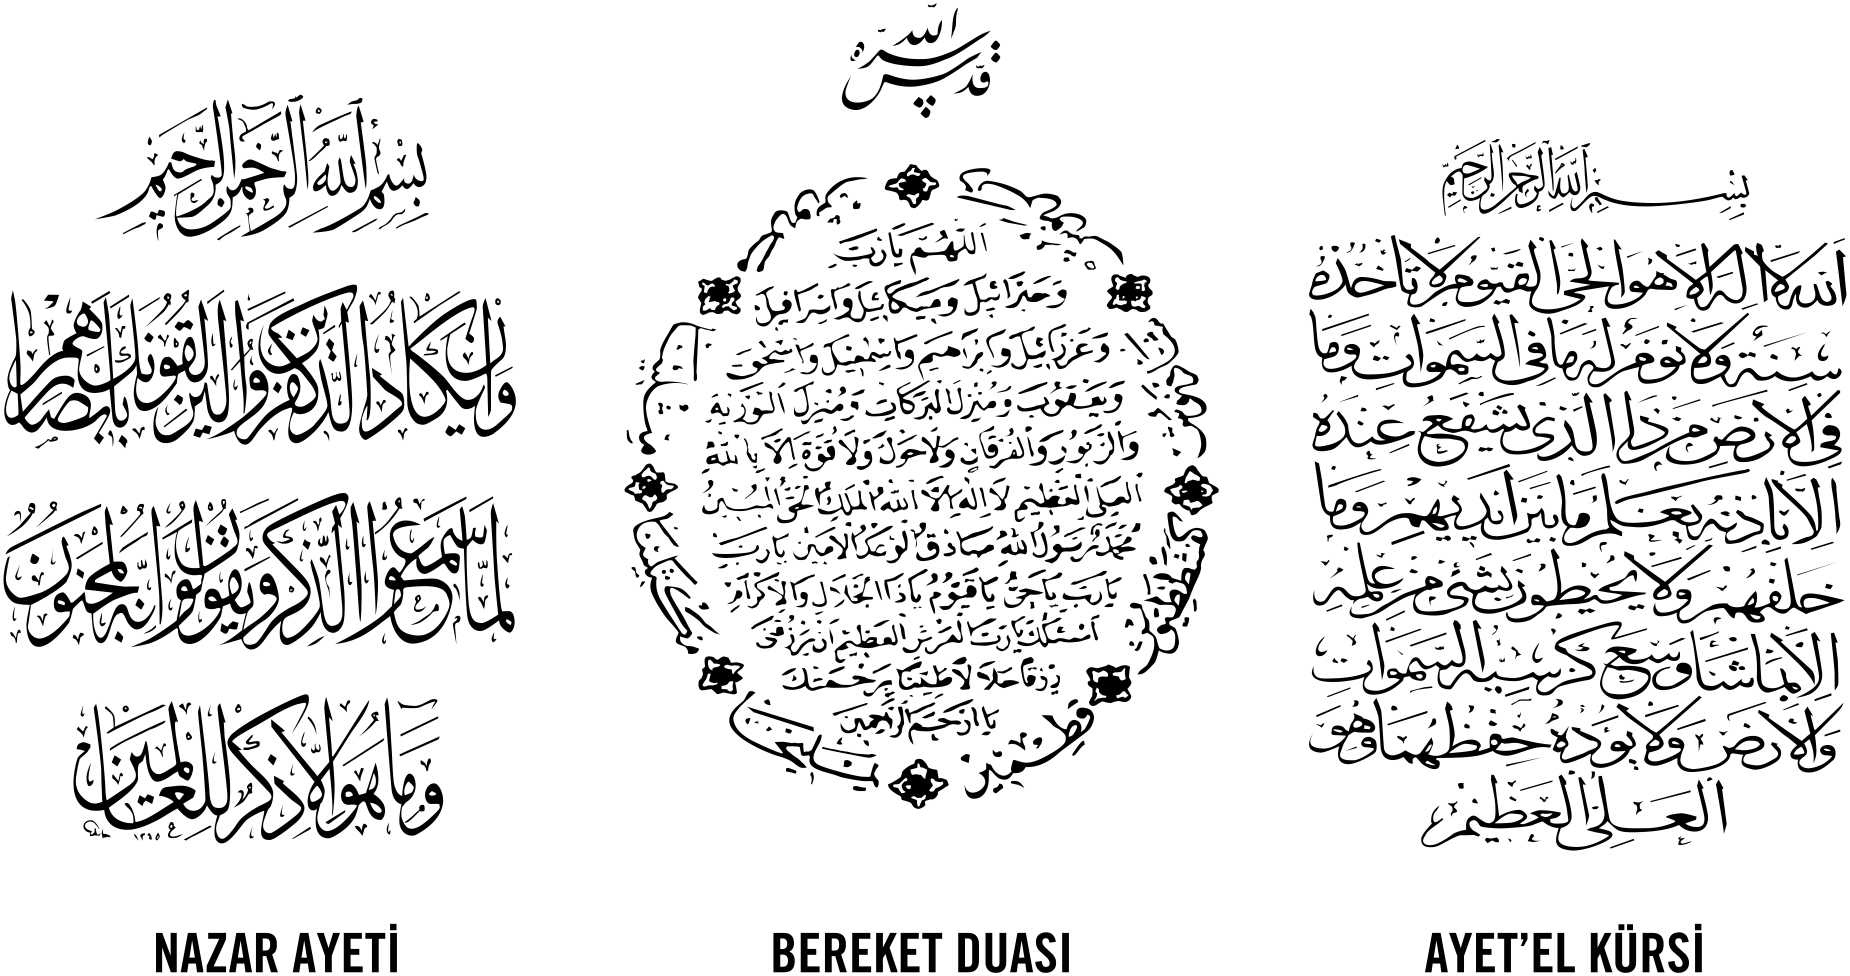 بِسْمِ اللّٰهِ الرَّحْمٰنِ الرَّحِيمِ
وَاِنْ يَكَادُ الَّذِينَ كَفَرُوا لَيُزْلِقُونَكَ بِاَبْصَارِهِمْ
لَمَّا سَمِعُوا الذِّكْرَ وَيَقُولُونَ اِنَّهُ لَمَجْنُونٌ
وَمَا هُوَ اِلَّا ذِكْرٌ لِلْعَالَمِينَ
١٣٤٥
NAZAR AYETİ
قدس الله سره
اَللّٰهُمَّ يَا رَبَّ
وَجَبْرَائِيلَ وَمِيكَائِلَ وَاِسْرَافِيلَ
وَعَزْرَائِيلَ وَاِبْرَاهِيمَ وَاِسْمٰعِيلَ وَاِسْحٰقَ
وَيَعْقُوبَ وَمُنْزِلَ الْبَرَكَاتِ وَمُنْزِلَ التَّوْرٰيةِ
وَالزَّبُورِ وَالْفُرْقَانِ وَلَا حَوْلَ وَلَا قُوَّةَ اِلَّا بِاللّٰهِ
الْعَلِيِّ الْعَظِيمِ لَا اِلٰهَ اِلَّا اللّٰهُ الْمَلِكُ الْحَقُّ الْمُبِينُ
مُحَمَّدٌ رَسُولُ اللّٰهِ صَادِقُ الْوَعْدِ الْاَمِينُ يَا رَبِّ
يَا رَبِّ يَا حَيُّ يَا قَيُّومُ يَا ذَا الْجَلَالِ وَالْاِكْرَامِ
اَسْئَلُكَ يَا رَبَّ الْعَرْشِ الْعَظِيمِ اَنْ يَرْزُقَنِي
رِزْقًا حَلَالًا طَيِّبًا بِرَحْمَتِكَ
يَا اَرْحَمَ الرَّاحِمِينَ
BEREKET DUASI
بِسْمِ اللّٰهِ الرَّحْمٰنِ الرَّحِيمِ
اَللّٰهُ لَا اِلٰهَ اِلَّا هُوَ الْحَيُّ الْقَيُّومُ لَا تَأْخُذُهُ
سِنَةٌ وَلَا نَوْمٌ لَهُ مَا فِي السَّمٰوَاتِ وَمَا
فِي الْاَرْضِ مَنْ ذَا الَّذِي يَشْفَعُ عِنْدَهُ
اِلَّا بِاِذْنِهِ يَعْلَمُ مَا بَيْنَ اَيْدِيهِمْ وَمَا
خَلْفَهُمْ وَلَا يُحِيطُونَ بِشَيْءٍ مِنْ عِلْمِهِ
اِلَّا بِمَا شَاءَ وَسِعَ كُرْسِيُّهُ السَّمٰوَاتِ
وَالْاَرْضَ وَلَا يَؤُدُهُ حِفْظُهُمَا وَهُوَ
الْعَلِيُّ الْعَظِيمُ
AYET’EL KÜRSİ